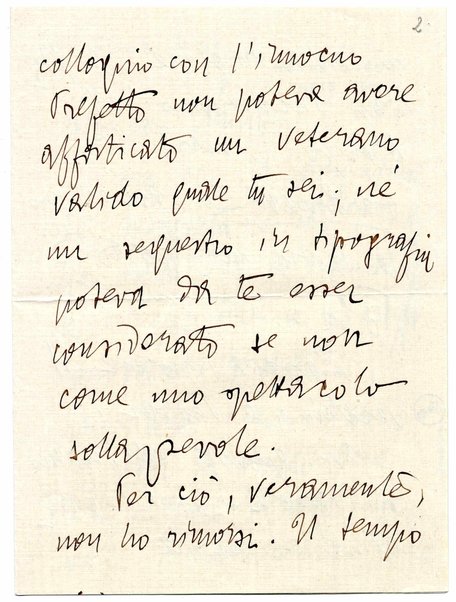 2.
colloquio con l'innocuo
Prefetto non poteva avere
affaticato un veterano
valido quale tu sei; né
un sequestro in tipografia
poteva da te esser
considerato se non
come uno spettacolo
sollazzevole.
Per ciò, veramente,
non ho rimorsi. Il tempo